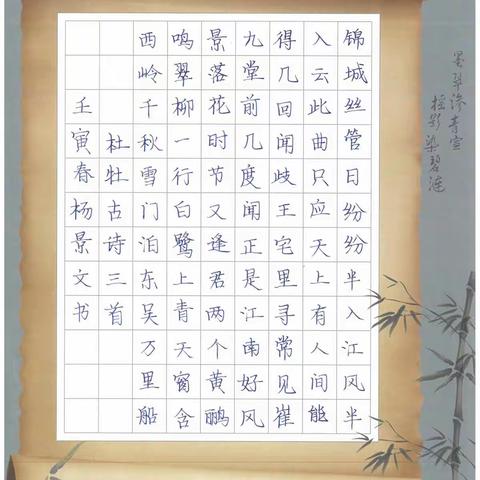 墨翠渗青宣
摇影染碧涟
锦城丝管日纷纷半入江风半
入云此曲只应天上有人间能
得几回闻歧王宅里寻常见崔
九堂前几度闻正是江南好风
景落花时节又逢君两个黄鹂
鸣翠柳一行白鹭上青天窗含
西岭千秋雪门泊东吴万里船
杜牡古诗三首
壬寅春杨景文书